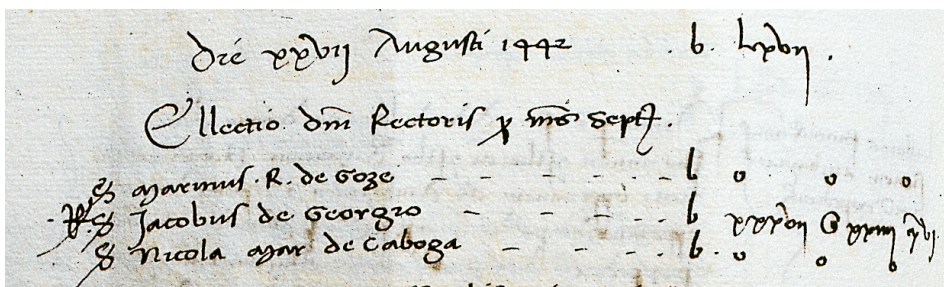 Die xxvii Augusti 1442 . b. lxvii .
Ellectio dni Rectoris p mes Septe.
S marinus. R. de Goze - - - - - b o o o
R. S Jacobus de Georgio - - - - - b xxxvii G xxiiii vi
S Nicola mar de Caboga - - - - b. o o o